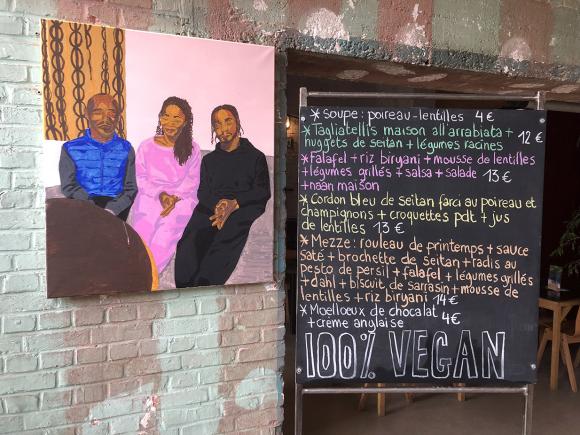 * Soupe : poireau-lentilles 4€
* Tagliatelli's maison all'arrabiata +
nuggets de seitan + légumes racines 12 €
* Falafel + riz biryani + mousse de lentilles
+ légumes grillés + salsa + salade 13 €
+ naan maison
* Cordon bleu de seitan farci au poireau et
champignons + croquettes pdt + jus
de lentilles 13 €
* Mezze : rouleau de printemps + sauce
saté + brochette de seitan + radis au
pesto de persil + falafel + légumes grillés
+ dahl + biscuit de sarrasin + mousse de
lentilles + riz biryani 14 €
* Moelloeux de chocolat
+ crème anglaise 4€
100% VEGAN